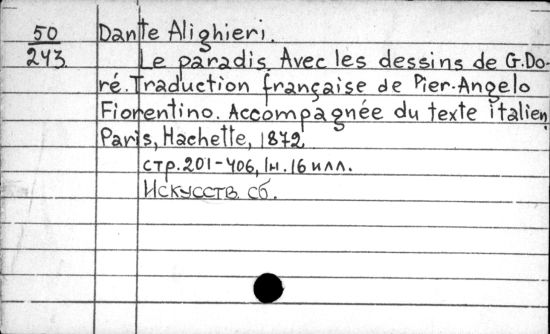 50
243
Dante Alighieri.
Le paradis. Avec les dessins de G.Do-
ré. Traduction française de Pier-Angelo
Fiorentino. Accompagnée du texte italien
Paris, Hachette, 1872
стр. 201-406, 1н. 16 илл.
Искусств. сб.